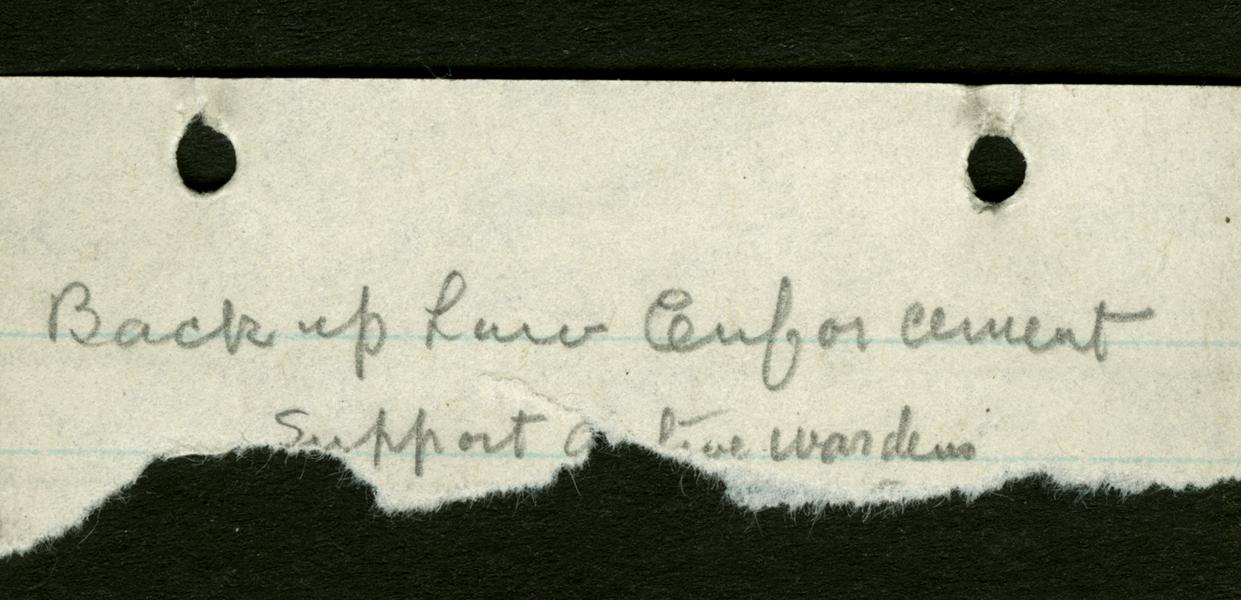 Back up Law Enforcement
Support wardens